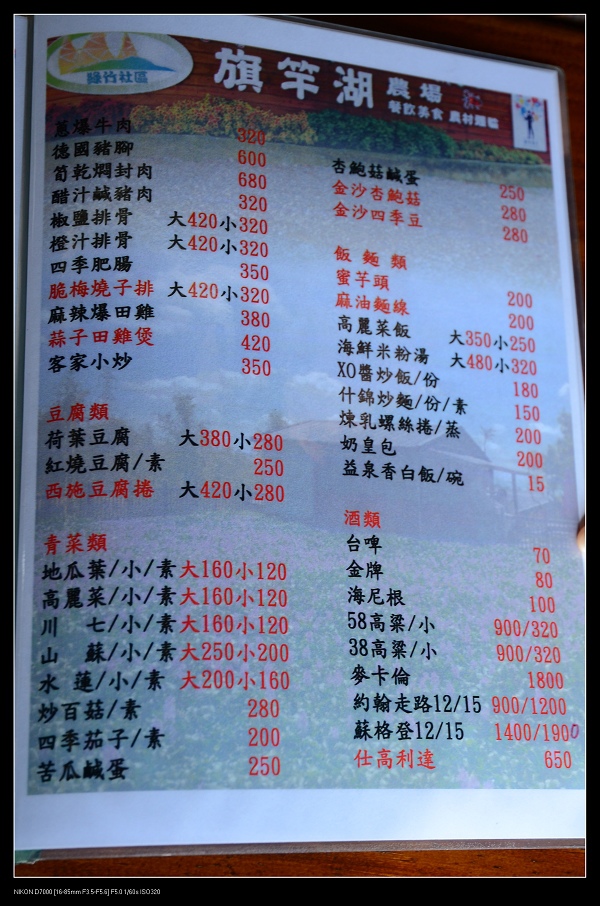 綠竹社區
旗竿湖
農場
餐飲美食 農村體驗
蔥爆牛肉 320
德國豬腳 600
筍乾燜封肉 680
醋汁鹹豬肉 320
椒鹽排骨 大420小320
橙汁排骨 大420小320
四季肥腸 350
脆梅燒子排 大420小320
麻辣爆田雞 380
蒜子田雞煲 420
客家小炒 350
豆腐類
荷葉豆腐 大380小280
紅燒豆腐/素 250
西施豆腐捲 大420小280
青菜類
地瓜葉/小/素大160小120
高麗菜/小/素大160小120
川 七/小/素大160小120
山 蘇/小/素大250小200
水 蓮/小/素 大200小160
炒百菇/素 280
四季茄子/素 200
苦瓜鹹蛋 250
杏鮑菇鹹蛋 250
金沙杏鮑菇 280
金沙四季豆 280
飯 麵 類
蜜芋頭 200
麻油麵線 200
高麗菜飯 大350小250
海鮮米粉湯 大480小320
XO醬炒飯/份 180
什錦炒麵/份/素 150
煉乳螺絲捲/蒸 200
奶皇包 200
益泉香白飯/碗 15
酒類
台啤 70
金牌 80
海尼根 100
58高粱/小 900/320
38高粱/小 900/320
麥卡倫 1800
約翰走路12/15 900/1200
蘇格登12/15 1400/1900
仕高利達 650
NIKON D7000 [16-85mm F3.5-F5.6] F5.0 1/60s ISO320